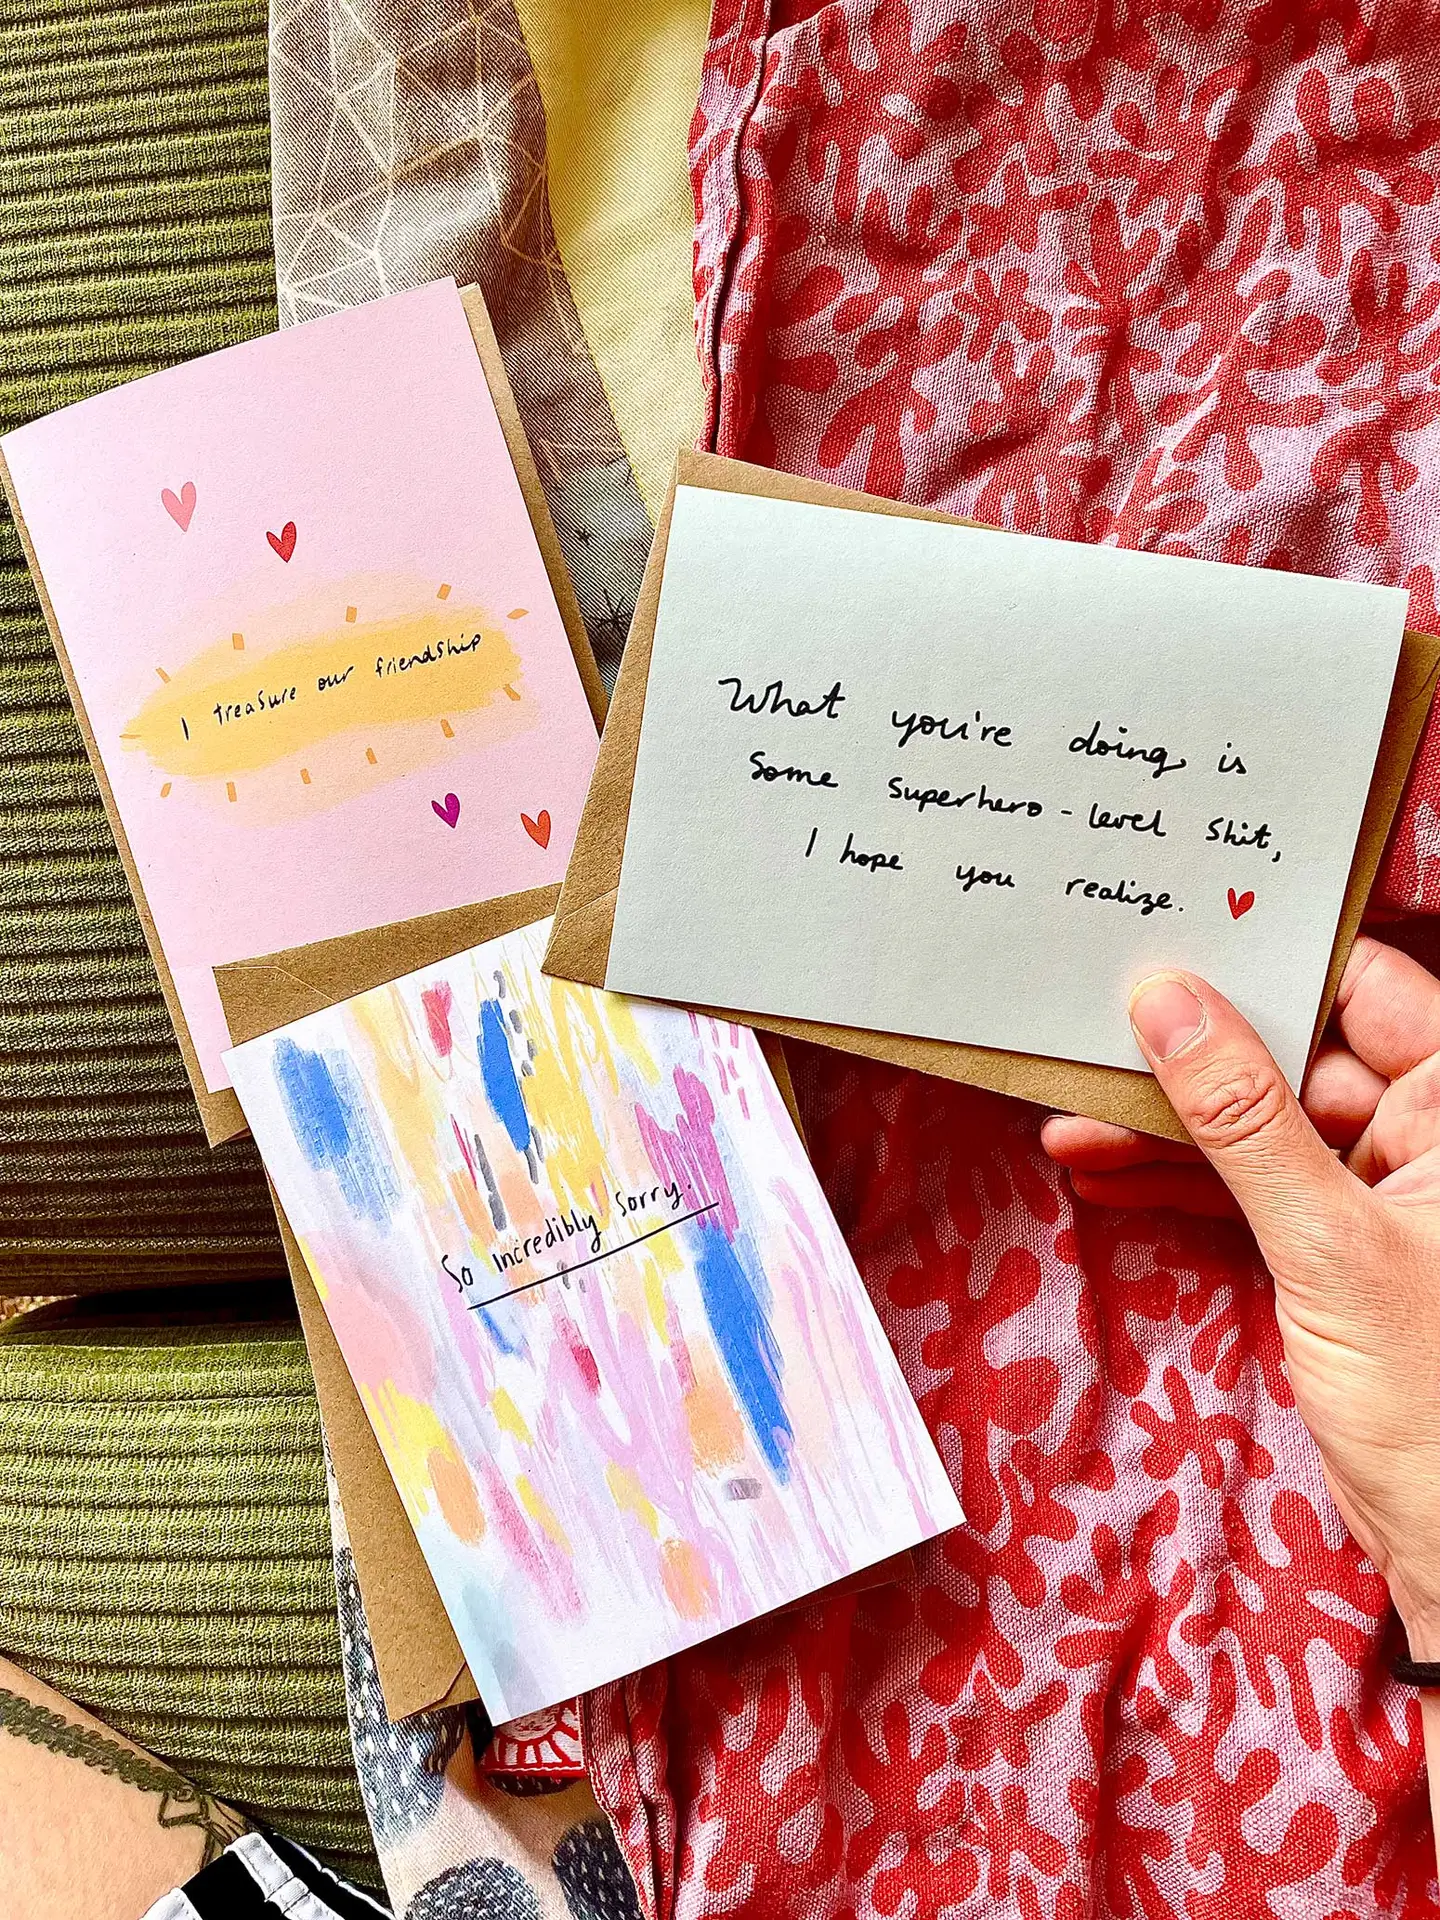 I treasure our friendship
What you're doing is
Some superhero-level shit,
I hope you realize.
So incredibly sorry.